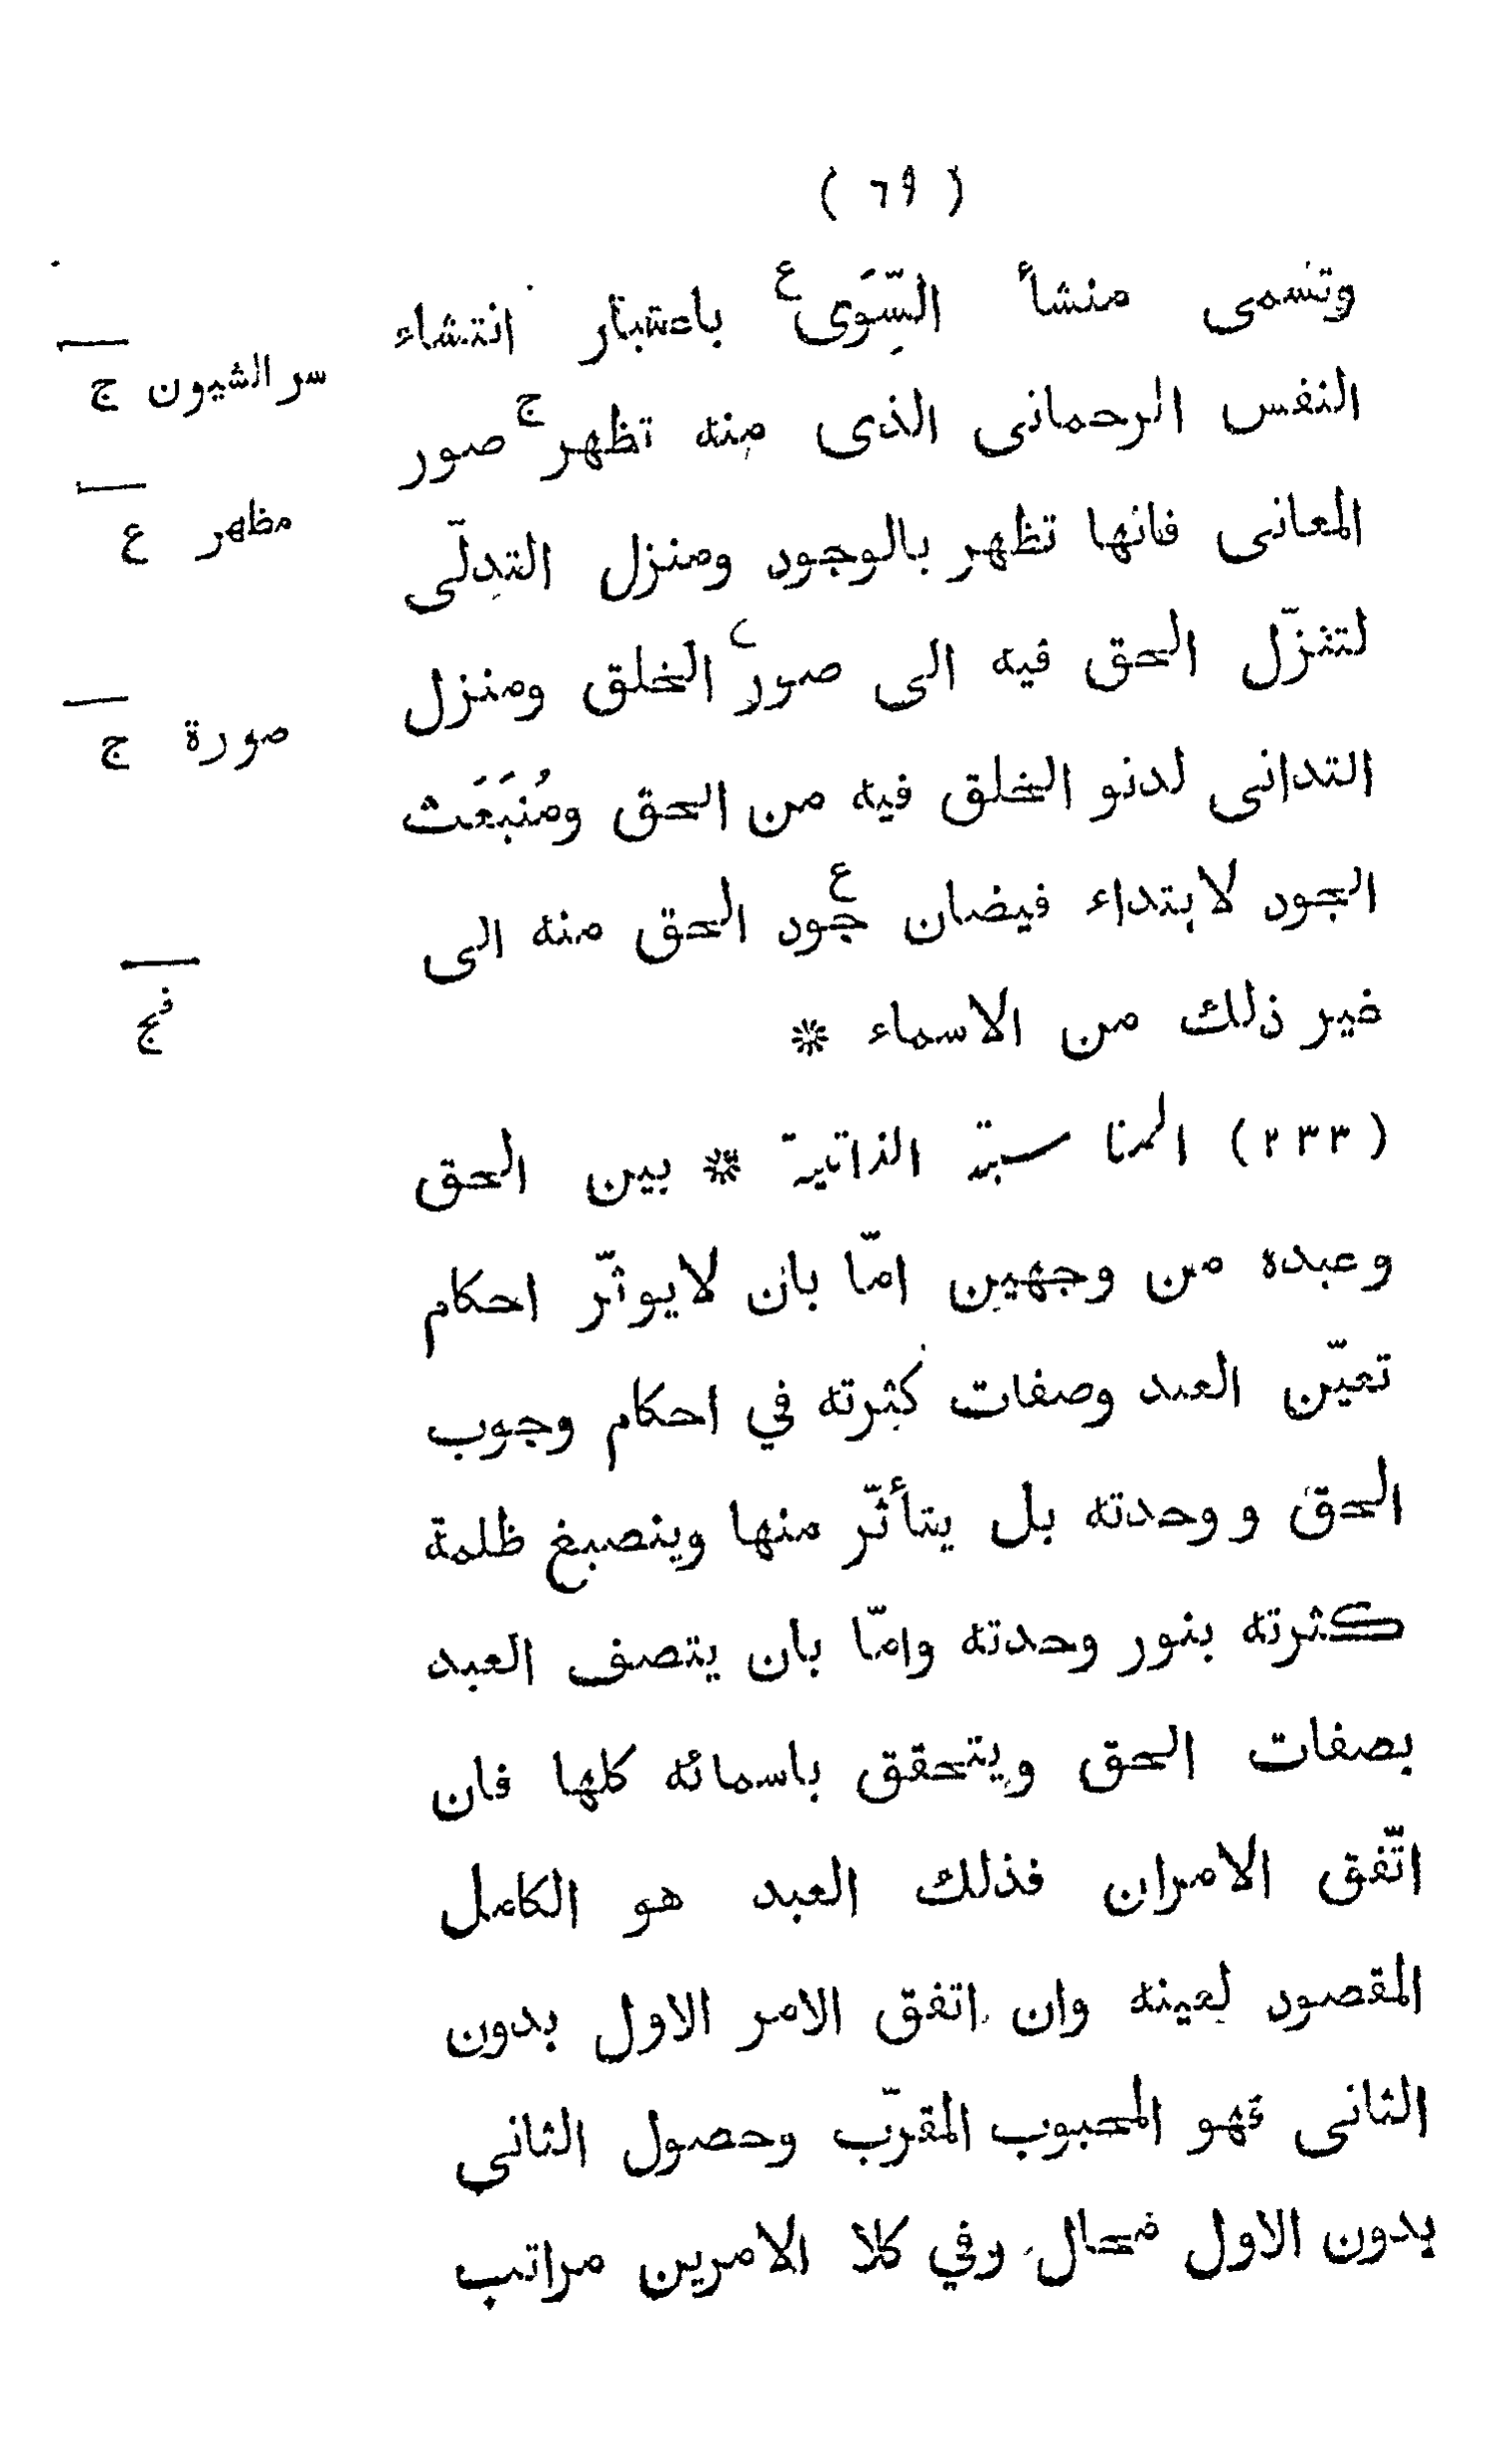 ( ٦٩ )
وتسمى منشأ السِّوَى ع باعتبار انتشاء
النفس الرحمانى الذى منه تظهر ج صور
المعانى فانها تظهر بالوجود ومنزل التدلّى
لتنزّل الحق فيه الى صور الخلق ومنزل
التدانى لدنو الخلق فيه من الحق ومُنبَعَث
الجود لابتداء فيضان جود ع الحق منه الى
غير ذلك من الاسماء *
(٢٣٣) المناسبة الذاتية * بين الحق
وعبده من وجهين امّا بان لايوثّر احكام
تعيّن العبد وصفات كثرته في احكام وجوب
الحق و وحدته بل يتأثّر منها وينصبغ ظلمة
كثرته بنور وحدته وامّا بان يتصف العبد
بصفات الحق ويتحقق باسمائه كلها فان
اتّفق الامران فذلك العبد هو الكامل
المقصود لعينه وان اتفق الامر الاول بدون
الثانى فهو المحبوب المقرّب وحصول الثانى
بدون الاول محال وفي كلا الامرين مراتب
سر الشيون ج
مظهر ع
صورة ج